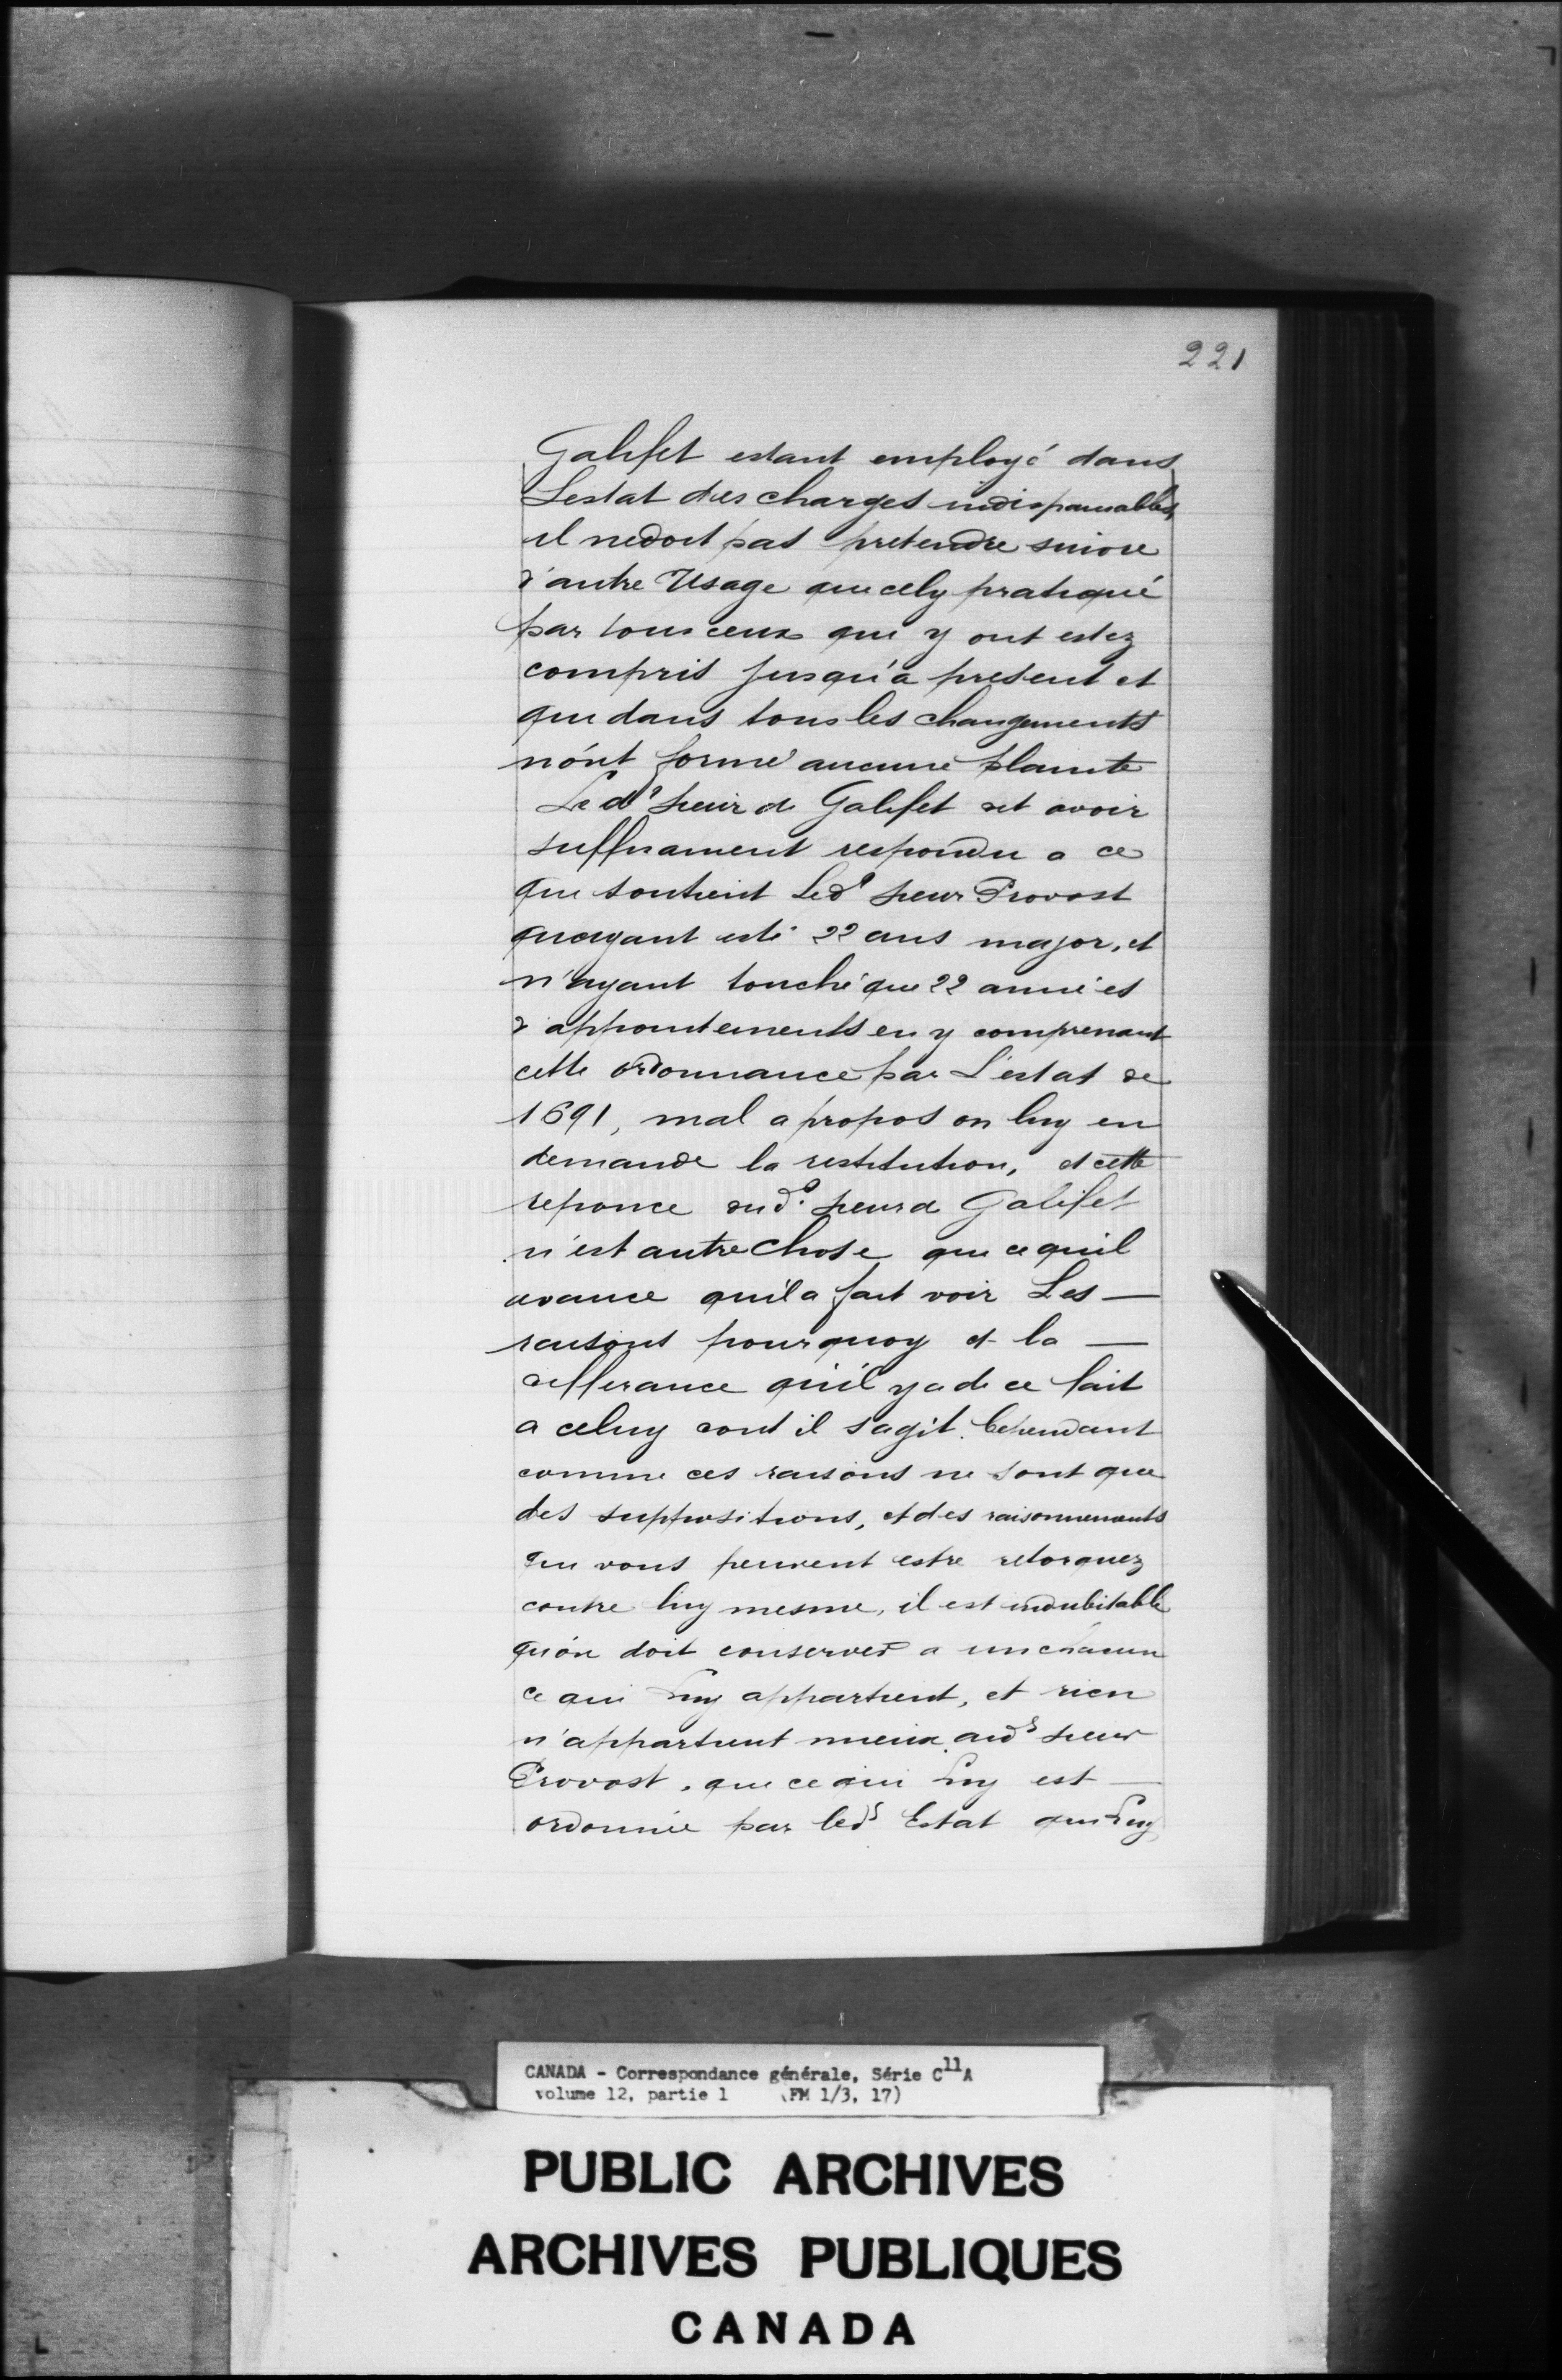 221
Galifet estant employé dans
Lestat des charges indispensables,
il nedoit pas pretendre suivre
d'autre Usage que cely pratiqué
par tous ceux qui y ont estez
compris Jusqu'a present et
qui dans tous les changements
n'ont formé aucune plainte
Le dt sieur de Galifet dit avoir
suffisament respondu a ce
que soutient Ledt sieur Provost
quayant esté 22 ans major, et
n'ayant touché que 22 années
d'appointements en y comprenant
cette ordonnance par L'estat de
1691, mal a propos on luy en
demande la restitution, et cette
reponce dud. sieur de Galifet
n'est autre chose que ce quil
avance quil a fait voir Les —
raisons pourquoy et la —
differance qu'il y a de ce fait
a celuy dont il s'agit. Cependant
comme ces raisons ne sont que
des suppositions, et des raisonnements
qui vous peuvent estre retorquez
contre luy mesme, il est indubitable
qu'on doit conserver a un chacun
ce qui Luy appartient, et rien
n'appartient mieux aud sieur
Provost, que ce qui Luy est —
ordonnée par led Estat qui Luy
CANADA - Correspondance générale, Série C11A
volume 12, partie 1 (FM 1/3, 17)
PUBLIC ARCHIVES
ARCHIVES PUBLIQUES
CANADA
L